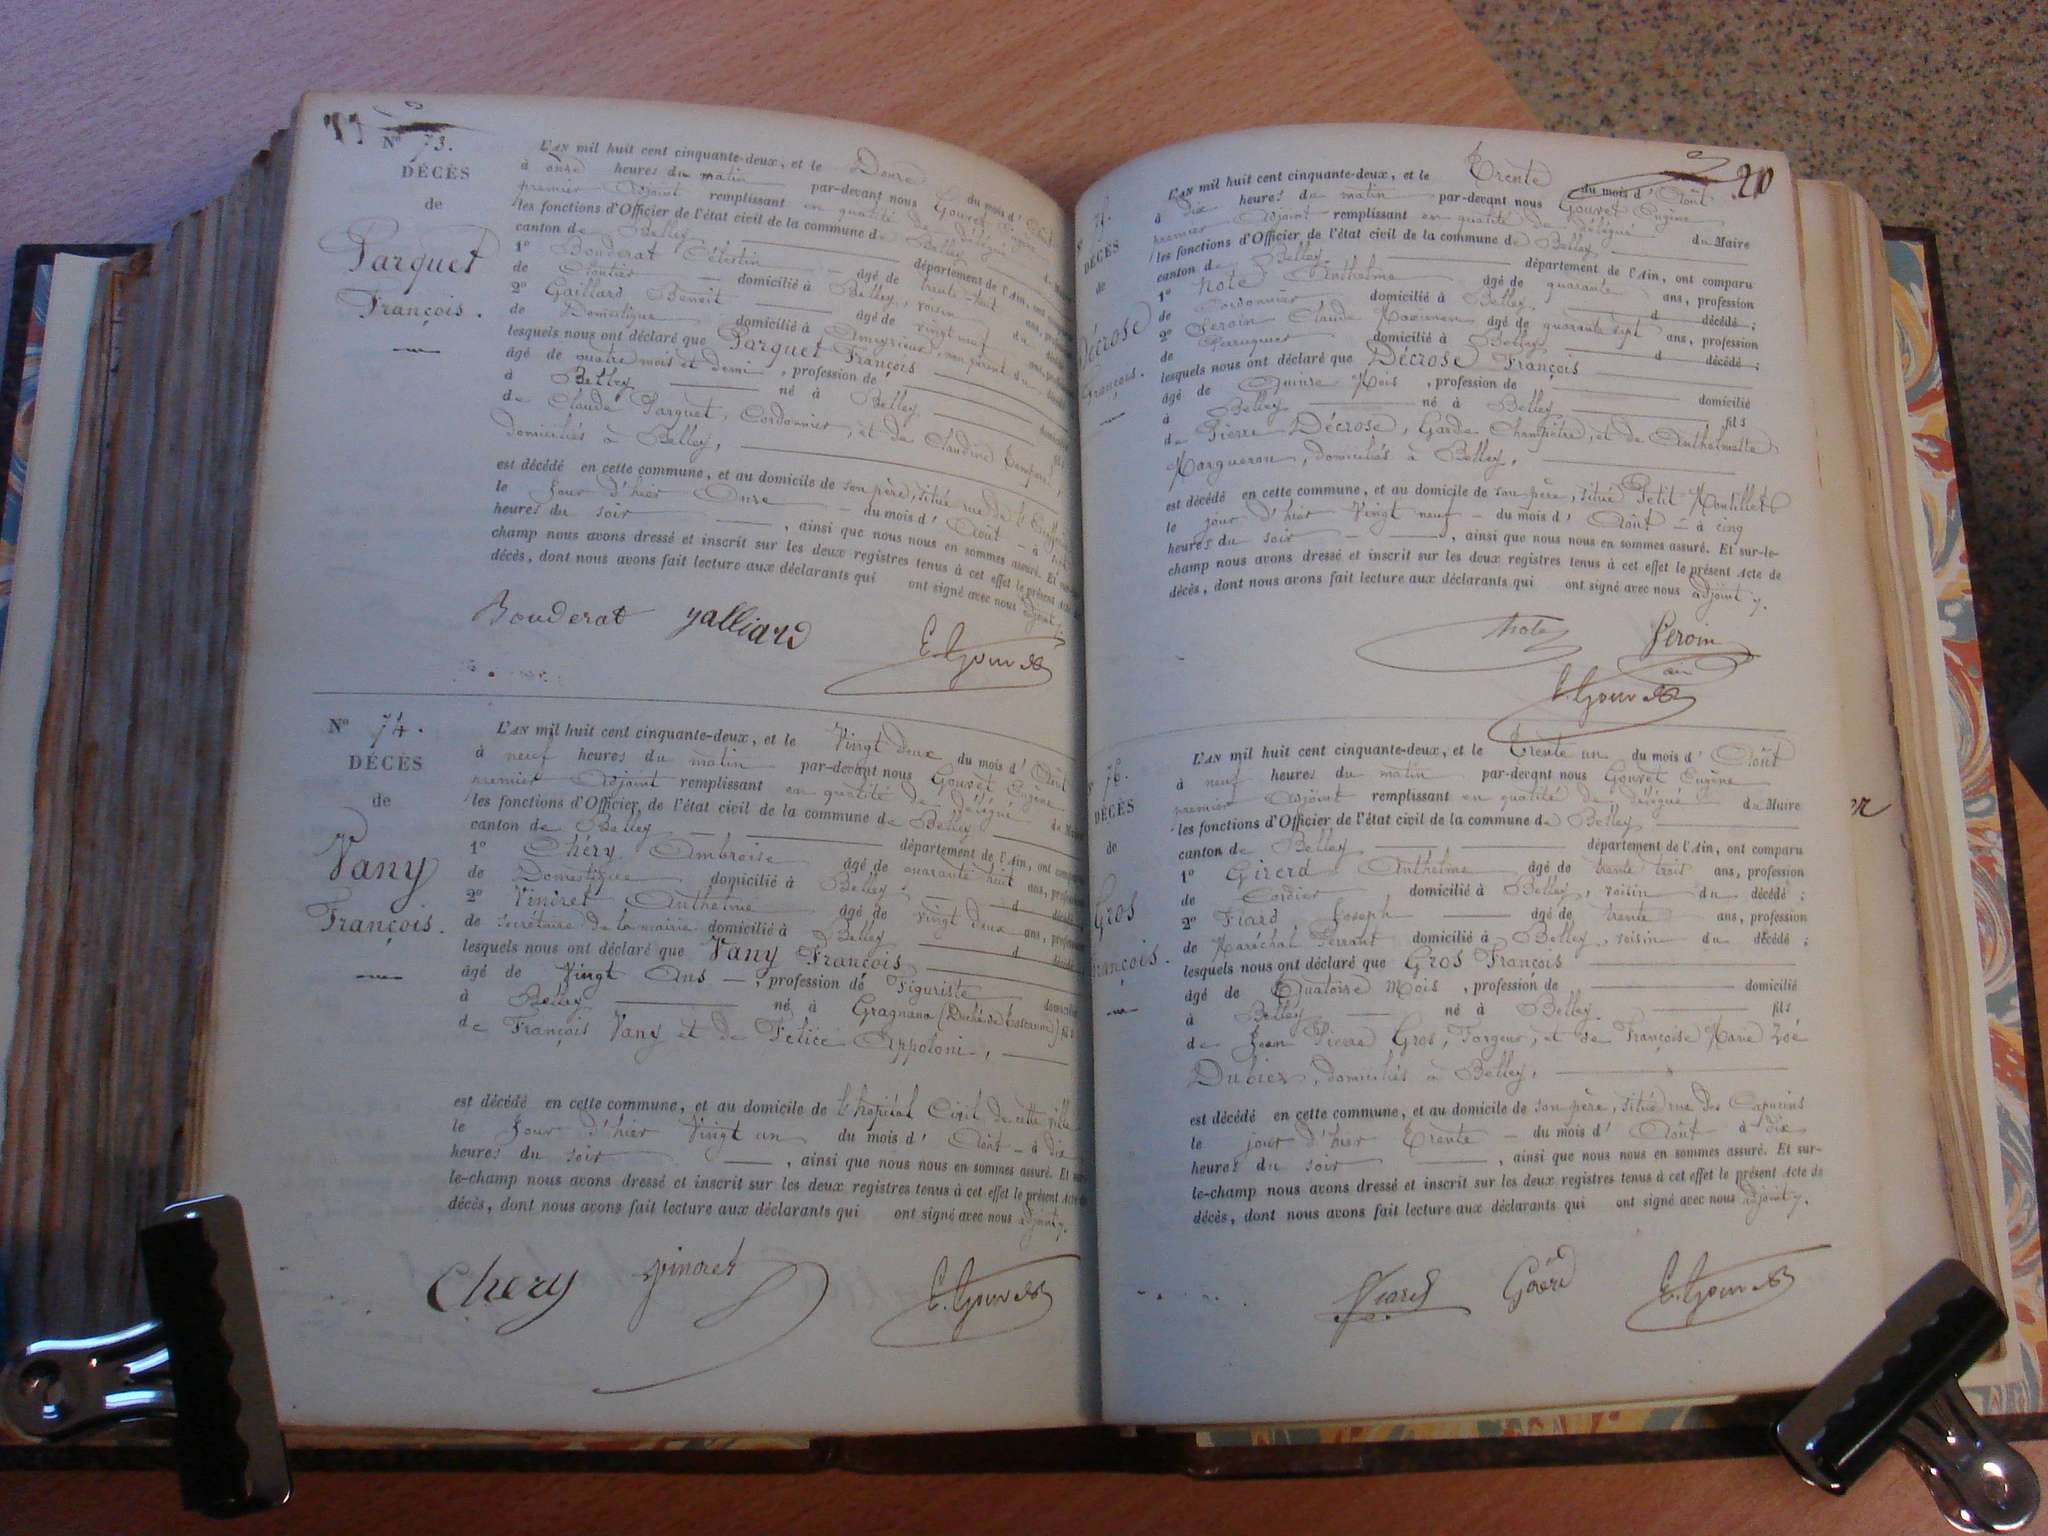 Nº 73.
DÉCÈS
de
Parquet
François.
L'AN mil huit cent cinquante-deux, et le Douze du mois d' Août
à onze heures du matin par-devant nous Gouvet Eugène
premier Adjoint remplissant en qualité de délégué du Maire
les fonctions d'Officier de l'état civil de la commune de Belley
canton de Belley département de l'Ain, ont comparu
1º Bouderat Célestin âgé de trente huit ans, profession
de domicilié à Belley, voisin du décédé
2º Gaillard Benoit âgé de vingt neuf ans, profession
de Domestique domicilié à Ameyzieux, non parent du décédé
lesquels nous ont déclaré que Parquet François
âgé de quatre mois et demi, profession de domicilié
à Belley né à Belley fils
de Claude Parquet, Cordonnier, et de Claudine
domiciliés à Belley,
est décédé en cette commune, et au domicile de son père, situé rue de
le Jour d'hier Onze du mois d' Août - à
heures du soir, ainsi que nous nous en sommes assuré. Et sur-le-
champ nous avons dressé et inscrit sur les deux registres tenus à cet effet le présent Acte de
décès, dont nous avons fait lecture aux déclarants qui ont signé avec nous adjoint
Bouderat yalliard E. Gouvet
Nº 74.
DÉCÈS
de
Vany
François.
L'AN mil huit cent cinquante-deux, et le Vingt deux du mois d' Août
à neuf heures du matin par-devant nous Gouvet Eugène
premier Adjoint remplissant en qualité de délégué du Maire
les fonctions d'Officier de l'état civil de la commune de Belley
canton de Belley département de l'Ain, ont comparu
1º Chéry Ambroise âgé de quarante huit ans, profession
de Domestique domicilié à Belley, d décédé
2º Vincret Anthelme âgé de vingt deux ans, profession
de secrétaire de la mairie domicilié à Belley d décédé
lesquels nous ont déclaré que Vany François
âgé de Vingt Ans, profession de Figuriste domicilié
à Belley né à Gragnana (Duché de Toscanne) fils
de François Vany et de Felice Appoloni,
est décédé en cette commune, et au domicile de l'hopital Civil de cette ville
le Jour d'hier Vingt un du mois d' Août - à dix
heures du soir, ainsi que nous nous en sommes assuré. Et sur-
le-champ nous avons dressé et inscrit sur les deux registres tenus à cet effet le présent Acte de
décès, dont nous avons fait lecture aux déclarants qui ont signé avec nous adjoint
Chery Vincret E. Gouvet
20
75.
DÉCÈS
de
Décrose
François.
L'AN mil huit cent cinquante-deux, et le Trente du mois d' Août
à dix heures du matin par-devant nous Gouvet Eugène
premier Adjoint remplissant en qualité de délégué du Maire
les fonctions d'Officier de l'état civil de la commune de Belley
canton de Belley. département de l'Ain, ont comparu
1º Note Anthelme âgé de quarante ans, profession
de Cordonnier domicilié à Belley d décédé ;
2º Peroin Claude âgé de quarante sept ans, profession
de Perruquier domicilié à Belley d décédé ;
lesquels nous ont déclaré que Décrose François
âgé de Quinze Mois, profession de domicilié
à Belley né à Belley fils
de Pierre Décrose, Garde Champêtre, et de Anthelmette
Margueron, domiciliés à Belley,
est décédé en cette commune, et au domicile de son père, situé Petit Montillet
le jour d'hier Vingt neuf - du mois d' Août - à cinq
heures du soir, ainsi que nous nous en sommes assuré. Et sur-le-
champ nous avons dressé et inscrit sur les deux registres tenus à cet effet le présent Acte de
décès, dont nous avons fait lecture aux déclarants qui ont signé avec nous adjoint
Note Peroin
E. Gouvet
76.
DÉCÈS
de
Gros
François.
L'AN mil huit cent cinquante-deux, et le Trente un du mois d' Août
à neuf heures du matin par-devant nous Gouvet Eugène
premier Adjoint remplissant en qualité de délégué du Maire
les fonctions d'Officier de l'état civil de la commune de Belley
canton de Belley département de l'Ain, ont comparu
1º Girerd Anthelme âgé de trente trois ans, profession
de Cordier, domicilié à Belley, voisin du décédé ;
2º Fiard Joseph âgé de trente ans, profession
de Maréchal Ferrant domicilié à Belley, voisin du décédé ;
lesquels nous ont déclaré que Gros François
âgé de Quatorze mois, profession de domicilié
à Belley né à Belley. fils
de Jean Pierre Gros, Forgeur, et de Françoise Marie Zoé
Dubiez, domiciliés à Belley,
est décédé en cette commune, et au domicile de son père, situé rue des Capucins
le jour d'hier Trente - du mois d' Août à dix
heures du soir, ainsi que nous nous en sommes assuré. Et sur-
le-champ nous avons dressé et inscrit sur les deux registres tenus à cet effet le présent Acte de
décès, dont nous avons fait lecture aux déclarants qui ont signé avec nous adjoint
Fiard E. Gouvet